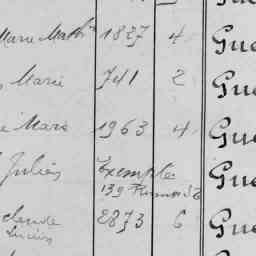 Gue
Marie Math 1827 4 Gue
Marie 741 2 Gue
e Marc 1963 4 Gue
Julien Exemple Gue
139
Claude 2873 6 Gue
Lucien